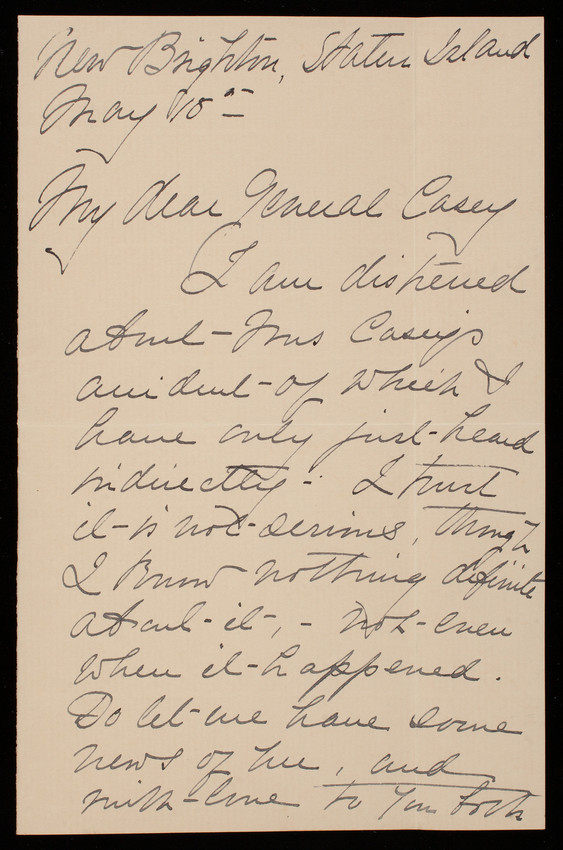 New Brighton, Staten Island
May 18th
My dear General Casey
I am distressed
about Mrs Casey's
accident - of which I
have only just heard
indirectly - I trust
it is not serious, though
I know nothing definite
about it, - not even
when it happened.
Do let me have some
news of her, and
with love to you both